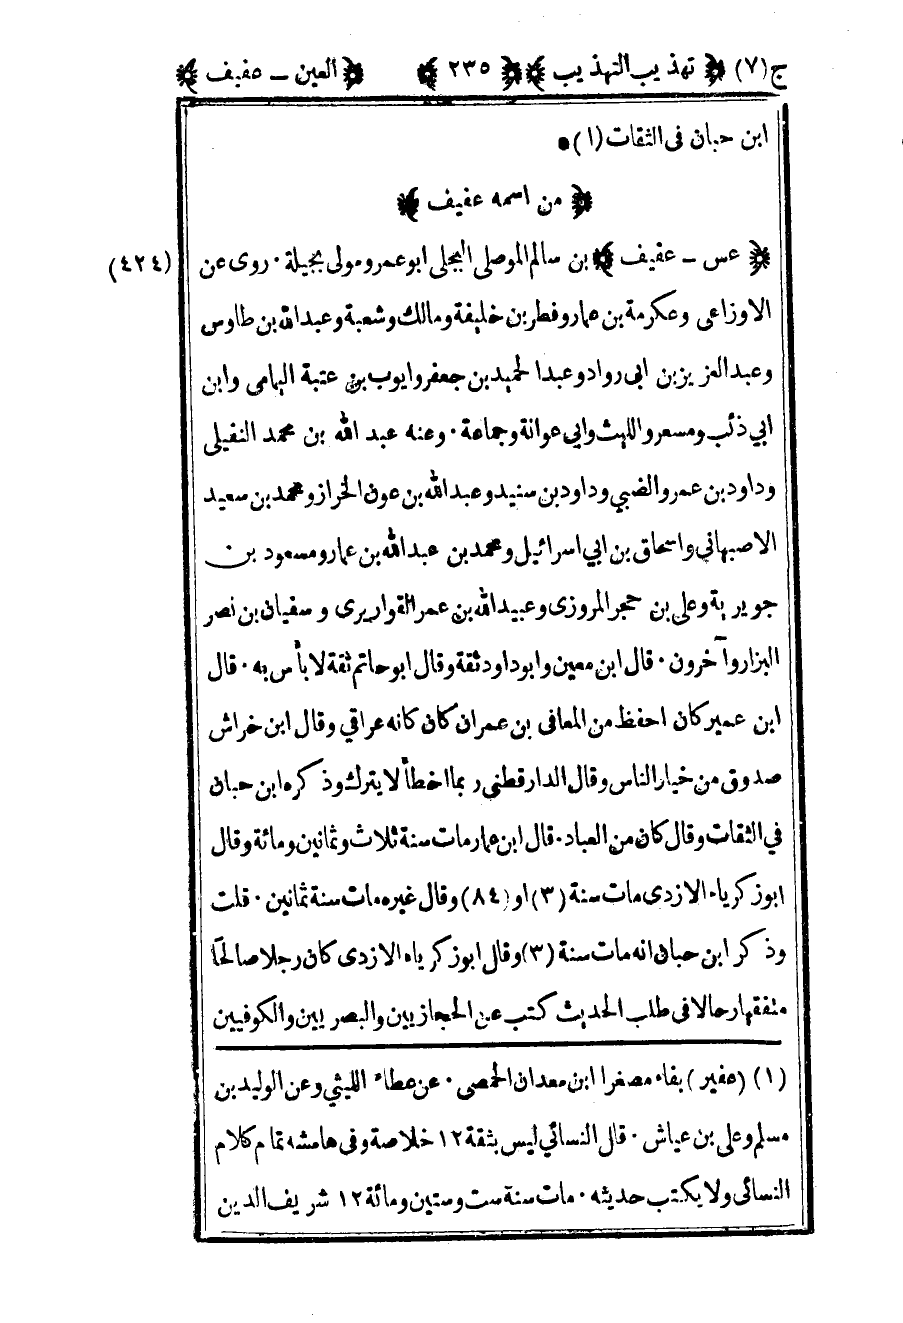 ج (٧) ﴿ تهذيب التهذيب ﴾ ﴿ ٢٣٥ ﴾ ﴿ العين ــ عفيف ﴾
ابن حبان فى الثقات (١) •
﴿ من اسمه عفيف ﴾
(٤٢٤) ﴿ عس ــ عفيف ﴾ بن سالم الموصلى البجلى ابو عمرو مولى بجيلة · روى عن
الاوزاعى وعكرمة بن عمار وفطر بن خليفة ومالك وشعبة وعبدالله بن طاوس
وعبدالعزيز بن ابى رواد وعبدالحميد بن جعفر وايوب بن عتبة اليمامى وابن
ابي ذئب ومسعر والليث وابي عوانة وجماعة · وعنه عبد الله بن محمد النفيلى
وداود بن عمرو الضبي وداود بن سنيد وعبدالله بن عون الخراز ومحمد بن سعيد
الاصبهاني واسحاق بن ابي اسرائيل ومحمد بن عبدالله بن عمار ومسعود بن
جويرية وعلى بن حجر المروزى وعبيدالله بن عمر القواريرى و سفيان بن نصر
البزار وآخرون · قال ابن معين وابو داود ثقة وقال ابو حاتم ثقة لا بأس به · قال
ابن عمير كان احفظ من المعافى بن عمران كان كانه عراقي وقال ابن خراش
صدوق من خيار الناس وقال الدارقطني ربما اخطأ لا يترك وذكره ابن حبان
في الثقات وقال كان من العباد · قال ابن عمار مات سنة ثلاث وثمانين ومائة وقال
ابو زكرياء الازدى مات سنة (٣) او (٨٤) وقال غيره مات سنة ثمانين · قلت
وذكر ابن حبان انه مات سنة (٣) وقال ابو زكرياء الازدى كان رجلا صالحا
متفقها رحالا فى طلب الحديث كتب عن الحجازيين والبصريين والكوفيين
(١) (عفير) بفاء مصغرا ابن معدان الحمصى · عن عطاء الليثي وعن الوليد بن
مسلم وعلى بن عياش · قال النسائي ليس بثقة ١٢ خلاصة وفى هامشه تمام كلام
النسائى ولا يكتب حديثه · مات سنة ست وستين ومائة ١٢ شريف الدين